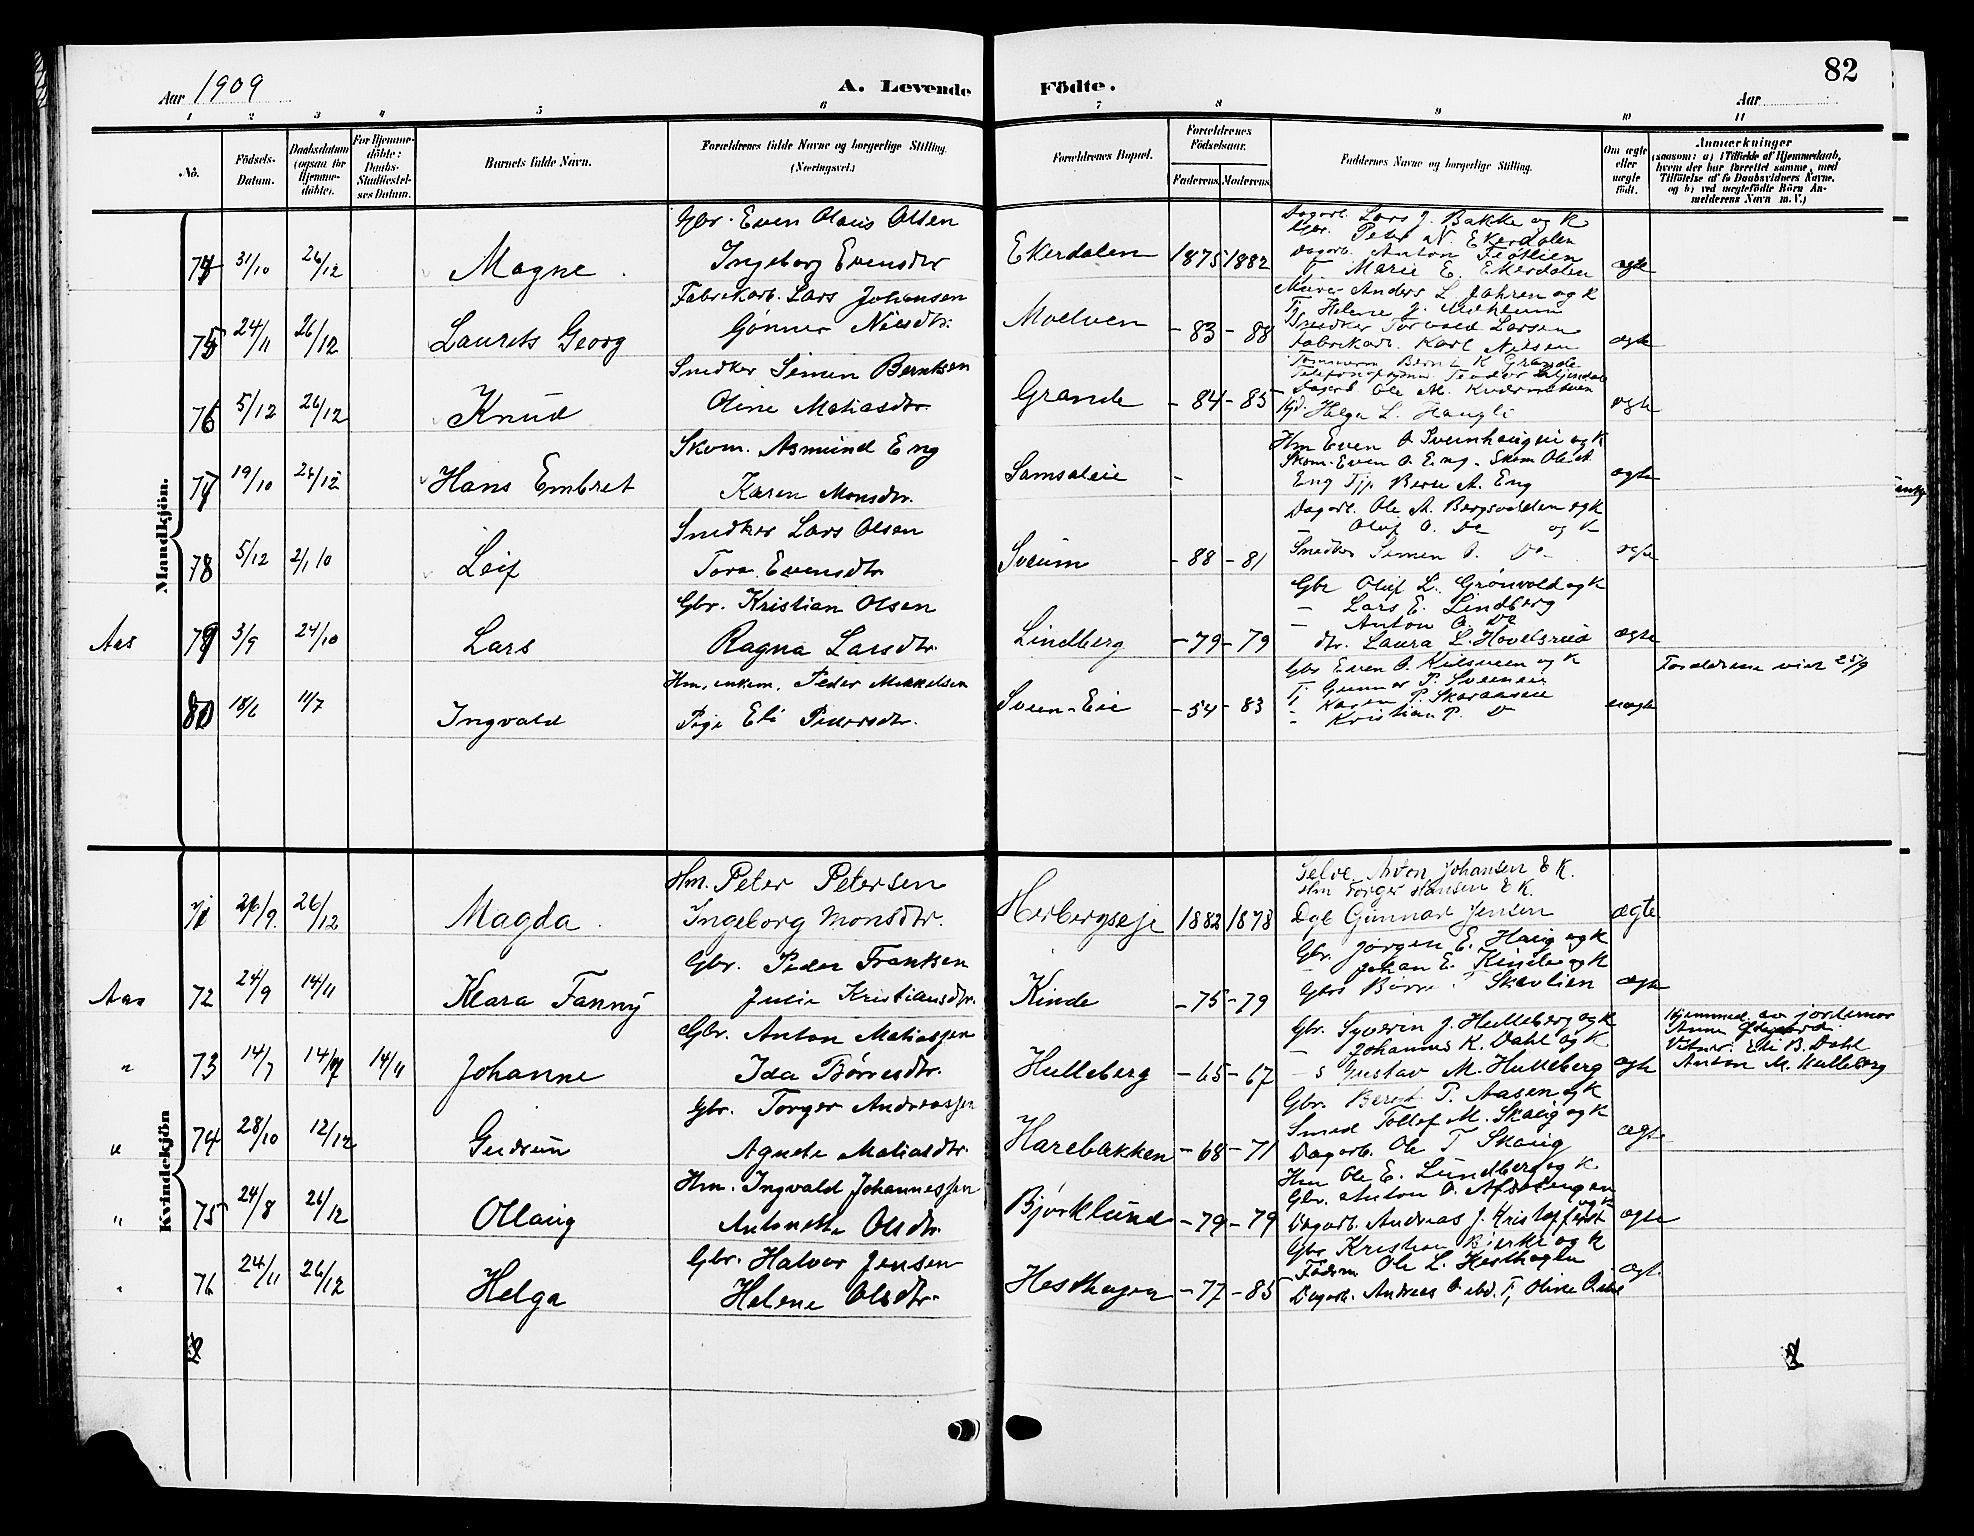 82
Aar 1909
A. Levende Födte.
Aar
1 2 3 4 5 6 7 8 9 10 11
No.
Födsels-Datum.
Daabsdatum (ogsaa for Hjemmedöbte).
For Hjemmedöbte: Daabs-Stadfæstelses Datum.
Barnets fulde Navn.
Forældrenes fulde Navne og borgerlige Stilling. (Næringsvei.)
Forældrenes Bopæl.
Forældrenes Födselsaar.
Faderens. Moderens.
Faddernes Navne og borgerlige Stilling.
Om ægte eller uægte födt.
Anmærkninger (saasom: a) i Tilfælde af Hjemmedaab, hvem der har forrettet samme, med Tilföielse af to Daabsvidners Navne, og b) ved uægtefödte Börn Anmelderens Navn m. V.)
Mandkjön.
74 31/10 26/12 Magne
Gbr. Even Olaus Olsen
Ingeborg Evensdtr
Ekerdalen 1875 1882
Dagarb. Lars J. Bakke og K
Gbr. Peter N. Ekerdalen
Dagarb. Anton
Marie E. Ekerdalen
ægte
75 24/11 26/12 Laurits Georg
Fabrikarb. Lars Johansen
Gønner Nilsdtr.
Moelven - 83 - 88
Murer Anders L. Jahren og K
T. Helene J.
Snedker Torvald Larsen
Fabrikarb. Karl Nilsen
ægte
76 5/12 26/12 Knud
Snedker Simen Berntsen
Oline Matiasdtr.
Grande - 84 - 85
Tømmerm. Bernt K Grande
Dagarb Ole M.
Helga L. Haugli
ægte
77 19/10 26/12 Hans Embret
Skom. Asmund Eng
Karen Monsdtr.
-
Hm Even O Sveinhaugen og K
Skom. Even O. Eng. Skom Ole A
Eng Tjp. Berte A. Eng
ægte
78 5/12 2/1 10 Leif
Snedker Lars Olsen
Tora Evensdtr
Sveum - 88 - 81
Dagarb. Ole M. Bergsodden og K
Oluf O. Do og K
Snedker Simen O. Do
ægte
Aas 79 3/9 24/10 Lars
Gbr. Kristian Olsen
Ragna Larsdtr.
Lindberg - 79 - 79
Gbr Oluf L. Grønvold og K
- Lars E. Lindberg
- Anton O. Do
dtr. Laura L. Hovelsrud
ægte
80 18/6 11/7 Ingvald
Hm. enkem. Peder Mikkelsen
Pige Eli Pedersdtr.
Sveen-Eie - 54 - 83
Gbr Even O. Kilsveen og K
T. Gunnar P. Sveeneie
T. Karen P. Skaraaseie
- Kristian P. Do
uægte
Forældrene viet 25/9
Kvindekjön
71 26/9. 26/12 Magda.
Hm. Peter Petersen
Ingeborg Monsdtr.
Herbergseje 1882 1878
Selve. Anton Johansen & K.
Hm Torger Hansen & K.
Dgl Gunnar Jensen
ægte
Aas 72 24/9 14/11 Klara Fanny
Gbr. Peder Frantsen
Julie Kristiansdtr.
Kinde - 75 - 79
Gbr. Jørgen E. Haug og K
- Johan E. Kinde og K
Skavlien
ægte
" 73 14/7 14/7 14/11 Johanne
Gbr. Anton Matiassen
Ida Børresdtr.
Hulleberg - 65 - 67
Gbr. Syverin J. Hulleberg og K
- Johannes K. Dahl og K
- s Gustav M. Hulleberg
ægte
Hjemmed. av jordemor
Anne
Vidner. Eli B. Dahl
Anton M. Hulleberg
" 74 28/10 12/12 Gudrun
Gbr. Torger Andreassen
Agnete Matiasdtr.
Harebakken - 68 - 71
Gbr. Bernt P. Aasen og K
Smed Tollef M. Skaug og K
Dagarb. Ole T Skaug
ægte
" 75 24/8 26/12 Ollaug
Hm. Ingvald Johannessen
Antonette Olsdtr.
Bjørklund - 79 - 79
Hm Ole E. Lundberg og K
Gbr. Anton O.
og K
Dagarb. Andreas J.
ægte
" 76 24/11 26/12 Helga
Gbr. Halvor Jensen
Helene Olsdtr.
Hesthagen - 77 - 85
Gbr Kristian Bjerke og K
Ole L. Hesthagen
Dagarb. Andreas O ibd. T, Oline
ægt.